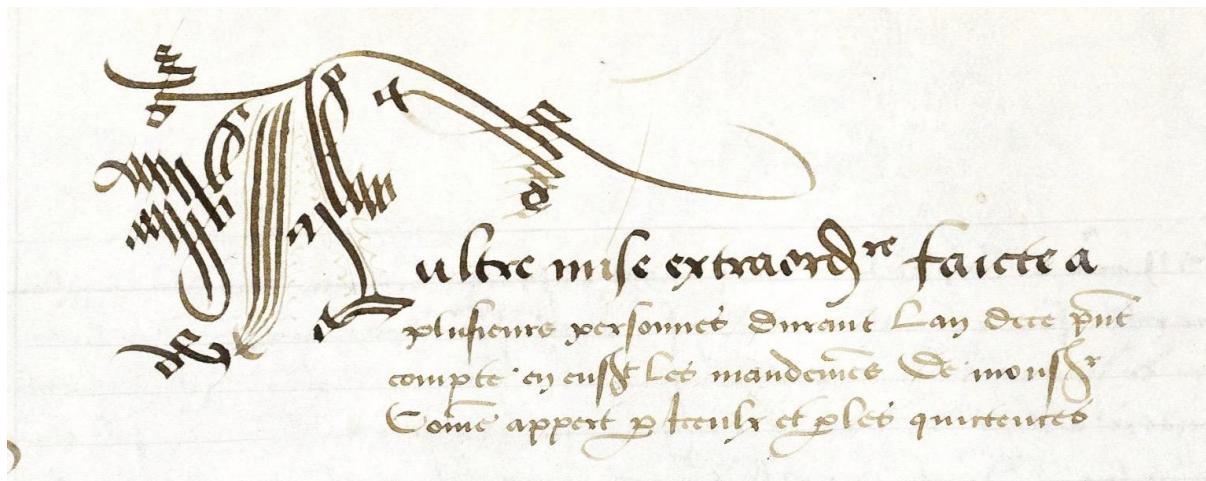 Aultre mise extraord^re faicte a
plusieurs personnes durant Lan de ce pnt
compte en ensst les mandemes De monsr
Come appert p Iceulx et p les quictences